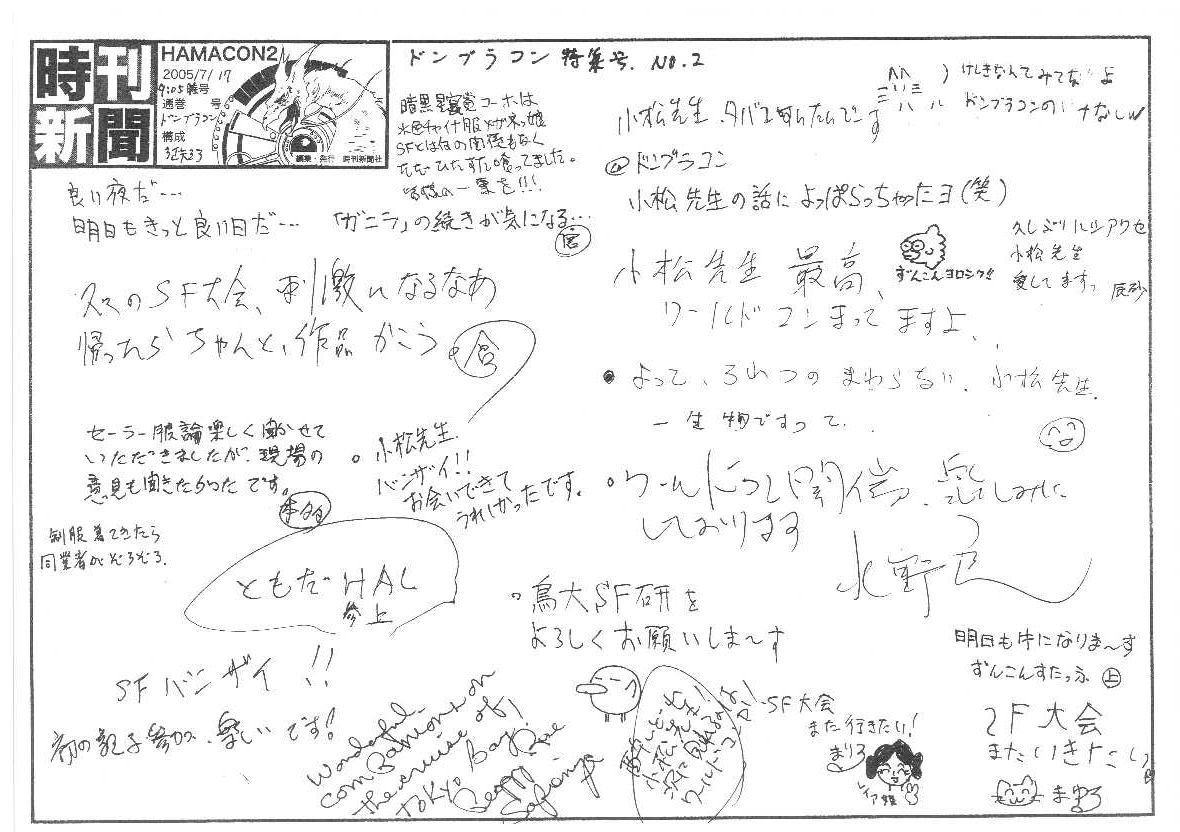 時刊新聞
HAMACON2
2005/7/17
9:05 號号
通巻 号
ドンブラコン
構成
編集・発行 時刊新聞社
ドンブラコン 特集号 No.2
暗黒星雲賞コーホは
水色チャイナ服メガネっ娘
SFとは何の関係もなく
ただひたすら喰ってました。
皆様の一票を!!!
良い夜だ…
明日もきっと良い日だ…
「ガニラ」の続きが気になる…
久々のSF大会、刺激になるなあ
帰ったらちゃんと、作品かこう。
セーラー服論楽しく聞かせて
いただきましたが、現場の
意見も聞きたかったです。
制服着てきたら
同業者がぞろぞろ。
小松先生
バンザイ!!
お会いできて
うれしかったです。
ともだHAL
参上
SFバンザイ!!
初の親子参加、楽しいです!
Wonderful
companions on
the cruise of
Tokyo Bay
けしきなんてみてないよ
ドンブラコンの
小松先生、タバコ
@ドンブラコン
小松先生の話によっぱらっちゃたヨ(笑)
小松先生 最高、
ワールドコンまってますよ、
ずんこんヨロシク!!
久しぶり
小松先生
愛してますっ
辰砂
よって、ろれつのまわらない、小松先生、
一生物ですって、
ワールドコン開催、楽しみに
しております
水野
鳥大SF研を
よろしくお願いしま〜す
小松先生!
次に
ワールドコンか!
SF大会
また行きたい!
まりろ
レイア姫
明日も牛になりま〜す
ずんこんすたっふ 上
SF大会
またいきたい